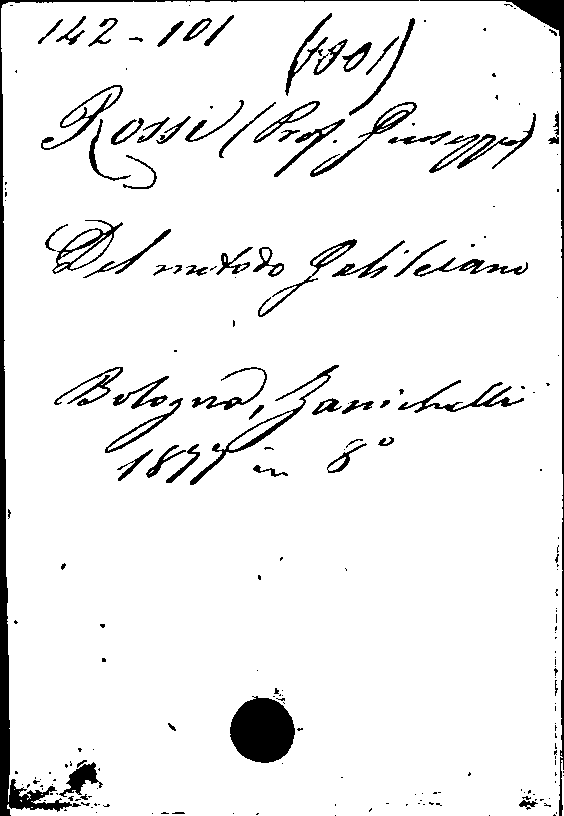 142-101
(1801)
Rossi (Prof. Giuseppe)
Del metodo Galileiano
Bologna, Zanichelli
1877 in 8°